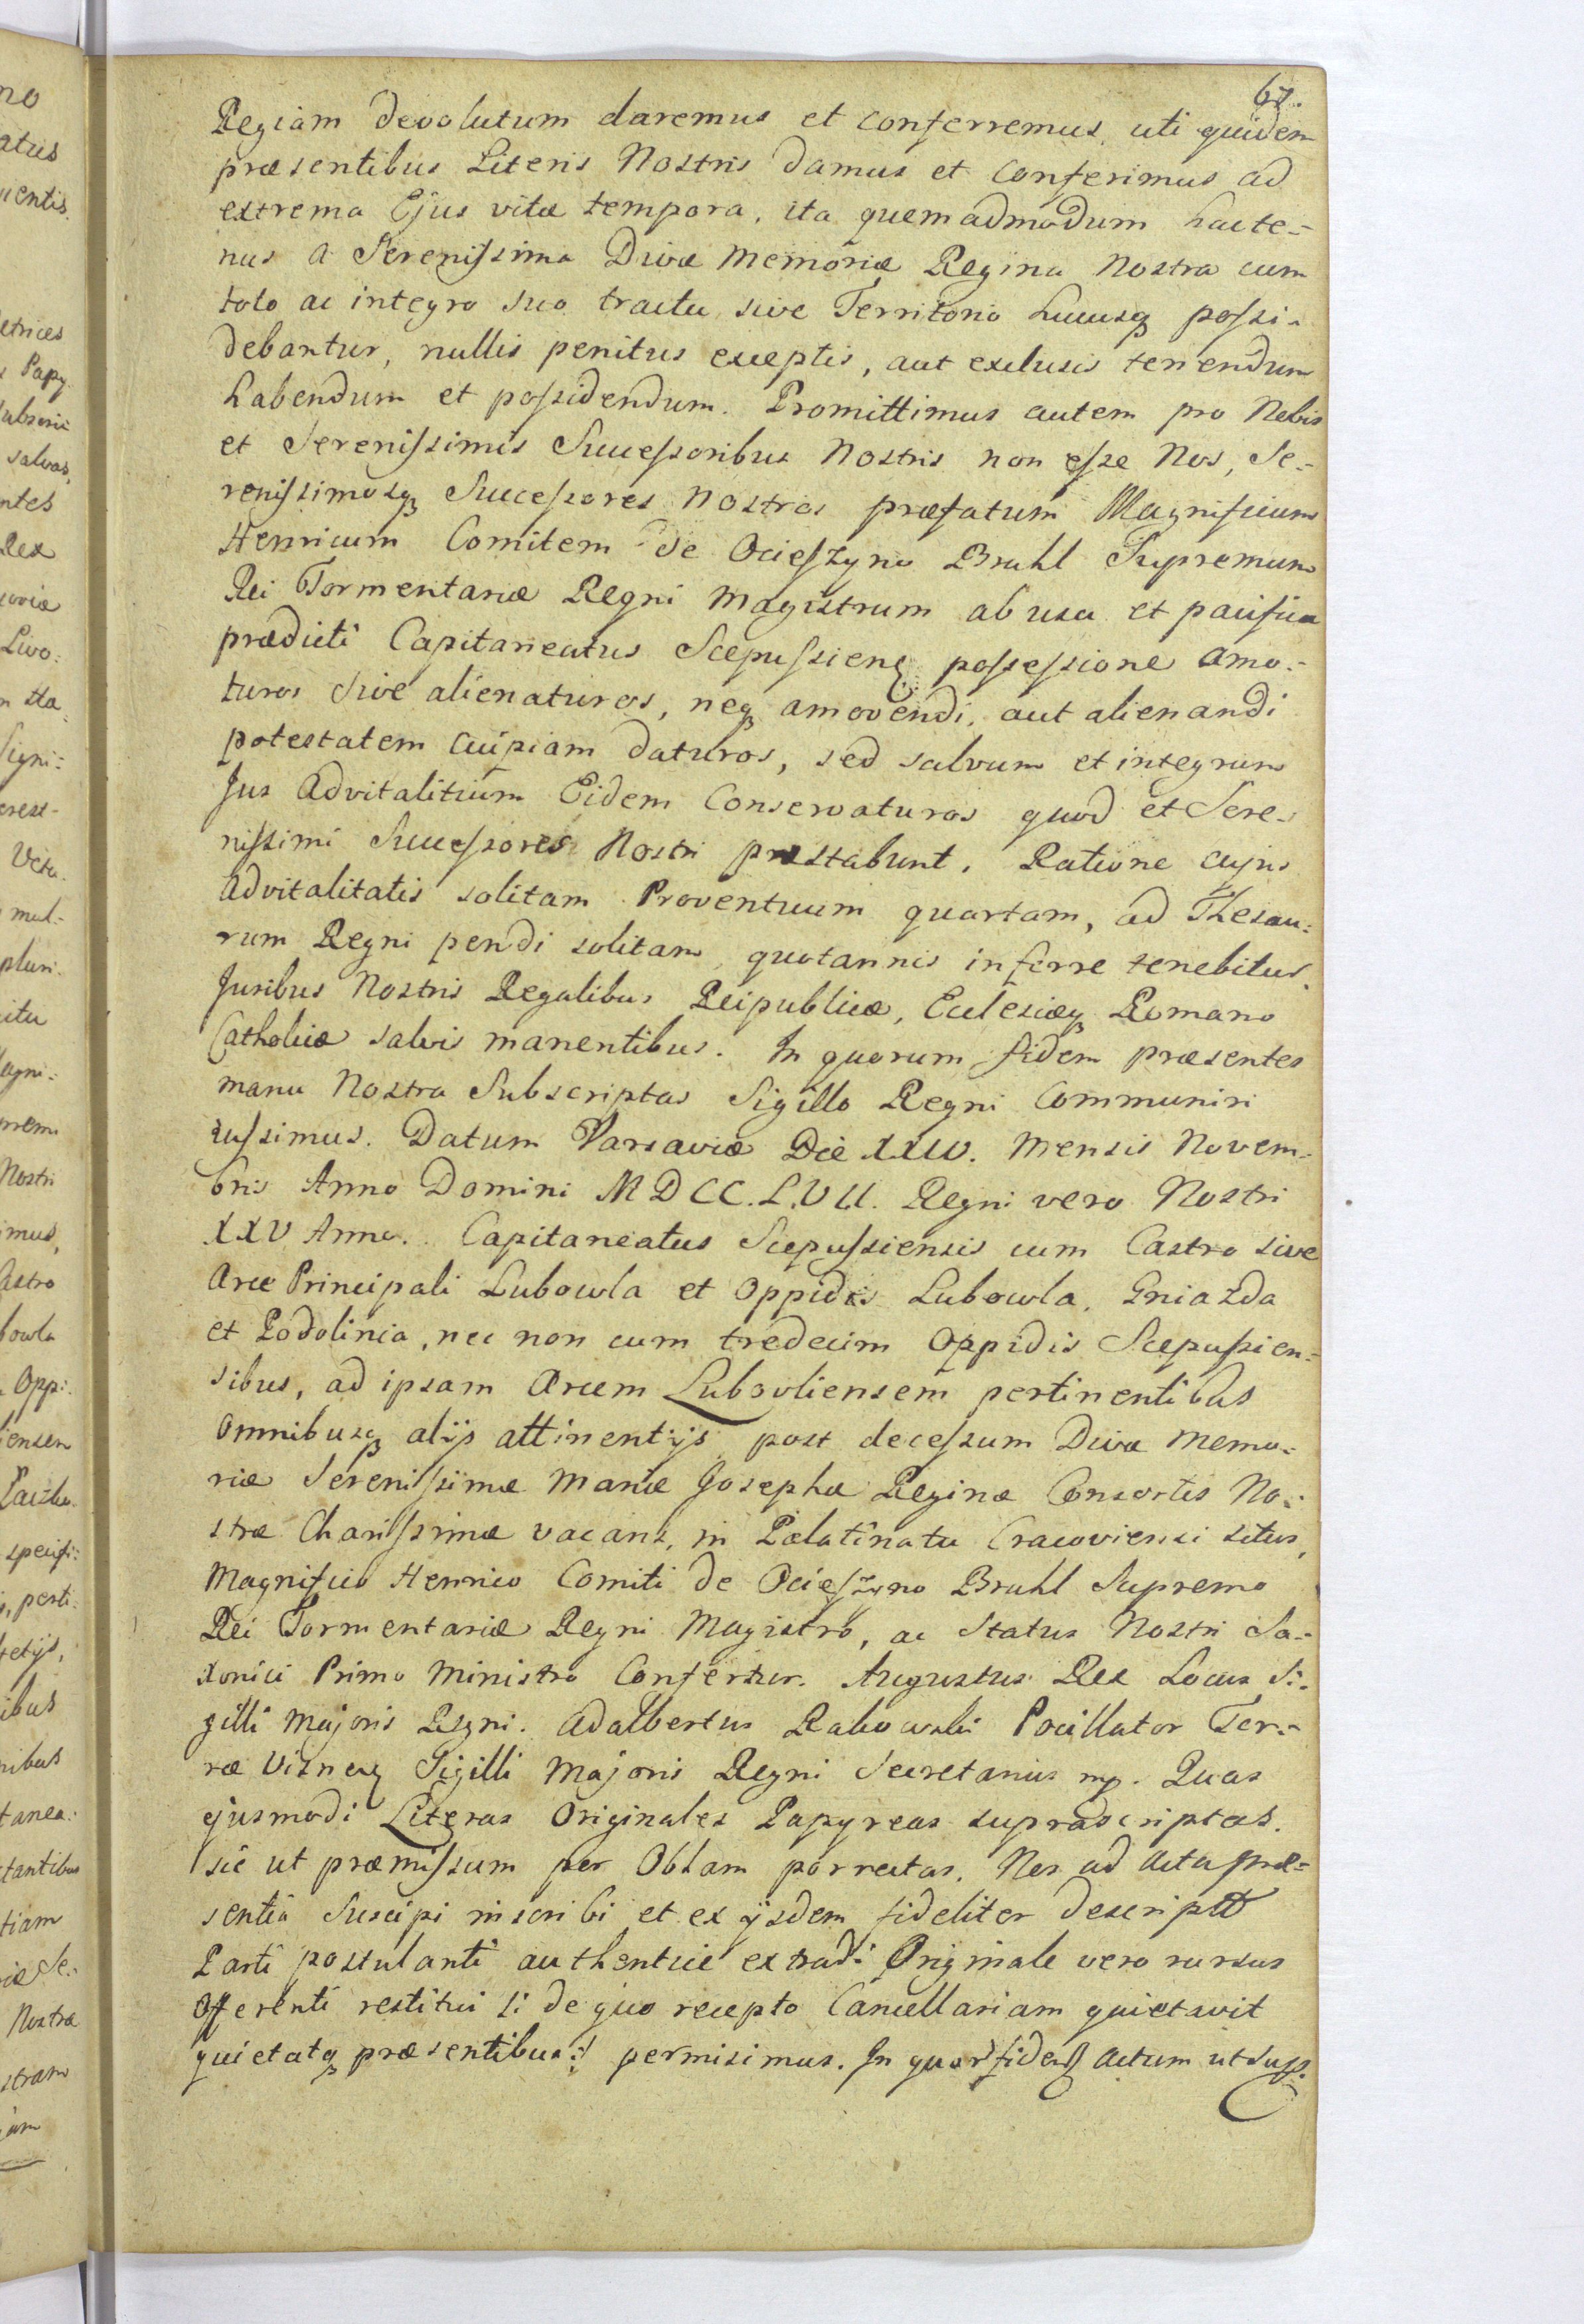 67.
Regiam devolutum daremus et conferremus, uti quidem
præsentibus Literis Nostris damus et conferimus ad
extrema Ejus vitæ tempora, ita quemadmodum hacte=
nus a Serenissima Divæ Memoriæ Regina Nostra cum
toto ac integro suo tractu sive Territorio hucusq possi=
debantur, nullis penitus exceptis, aut exclusis tenendum
habendum et possidendum. Promittimus autem pro Nobis
et Serenissimis Successoribus Nostris non esse Nos, Se=
renissimosq Successores Nostros præfatum Magnificum
Henricum Comitem de Ocieszyno Bruhl Supremum
Rei Tormentariæ Regni Magistrum ab usu et pacifica
prædicti Capitaneatus Scepussienς possessione amo=
turos sive alienaturos, neq amovendi, aut alienandi
potestatem cuipiam daturos, sed salvum et integrum
Jus Advitalitium Eidem Conservaturos quod et Sere=
nissimi Successores Nostri præstabunt. Ratione cujus
advitalitatis solitam Proventuum quartam, ad Thesau=
rum Regni pendi solitam quotannis inferre tenebitur.
Juribus Nostris Regalibus Reipublicæ, Eclesiæq Romano
Catholicæ salvis manentibus. In quorum fidem præsentes
manu Nostra Subscriptas Sigillo Regni Communiri
iussimus. Datum Varsaviæ Die XXIV. Mensis Novem=
bris Anno Domini MDCC.L.VII. Regni vero Nostri
XXV Anno. Capitaneatus Scepussiensis cum Castro sive
Arce Principali Lubowla et Oppidis Lubowla, Gniazda
et Podolinia, nec non cum tredecim Oppidis Scepussien=
sibus, ad ipsam Arcem Lubovliensem pertinentibus
omnibusq alijs attinentijs post decessum Divæ Memo=
riæ Serenissimæ Mariæ Josephæ Reginæ Consortis No=
stræ Charissimæ vacans, in Palatinatu Cracoviensi situs,
Magnifico Henrico Comiti de Ocieszyno Bruhl Supremo
Rei Tormentariæ Regni Magistro, ac Status Nostri Sa=
xonici Primo Ministro Confertur. Augustus Rex Locus Si=
gilli Majoris Regni. Adalbertus Rakowski Pocillator Ter=
ræ Visneς Sigilli Majoris Regni Secretarius mp. Quas
ejusmodi Literas Originales Papyreas supradscriptas.
sic ut præmissum per Obtam porrectas. Nos ad Acta præ=
sentia Suscipi inscribi et ex ijsdem fideliter descript
Parti postulanti authentice extradi Originale vero rursus
Offerenti restitui /: de quo recepto Cancellariam quietavit
quietatq præsentibus :/ permisimus. In quor fidem Actum ut sup.